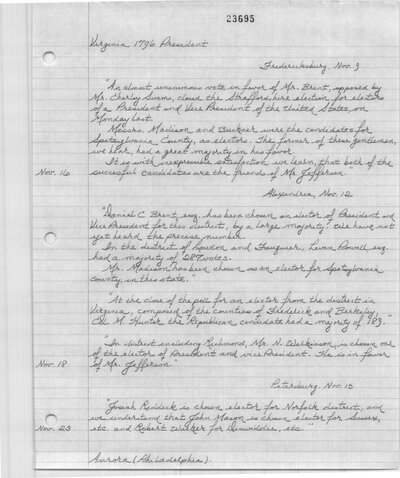 23695
Virginia 1796 President
Fredericksburg, Nov. 3
"An almost unanimous vote in favor of Mr. Brent, opposed by
Mr. Charley Simms, closed the Straffordshire election for electors
of a President and Vice President of the United States, on
Monday last.
Messrs. Madison and Buckner were the candidates for
Spotsylvania County, as electors. The former of these gentlemen,
we hear, had a great majority in his favor.
It is with inexpressible satisfaction we learn, that both of the
Nov. 16 successful candidates are the friends of Mr. Jefferson."
Alexandria, Nov. 12
"Daniel C. Brent, esq. has been chosen an elector of President and
Vice President for this district, by a large majority. We have not
yet heard the precise number.
In the district of Loudon and Fauquier, Leven Powell, esq.
had a majority of 287 votes.
Mr. Madison has been chosen as an elector for Spotsylvania
county, in this state."
"At the close of the poll for an elector from the district in
Virginia, composed of the counties of Frederick and Berkeley,
Col. M. Hunter, the Republican candidate had a majority of 189."
"In district including Richmond, Mr. N. Wilkinson is chosen one
of the elector of President and vice President. He is in favor
Nov. 18 of Mr. Jefferson."
Petersburg, Nov. 15
"Josiah Reddick is chosen elector for Norfolk district, and
we understand that John Mason is chosen elector for Sussex,
Nov. 23 etc. and Robert Walker for Dinwiddie, etc."
Aurora (Philadelphia).